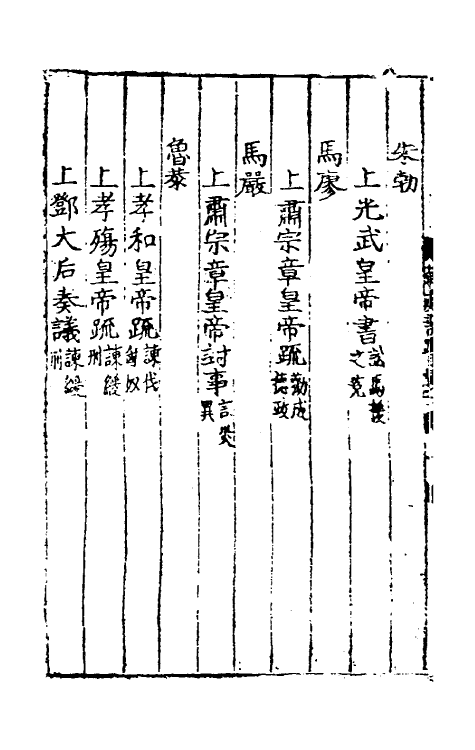 朱勃
上光武皇帝書訟馬援之冤
馬廖
上肅宗章皇帝疏勸成德政
馬嚴
上肅宗章皇帝封事言災異
魯恭
上孝和皇帝疏諫伐匈奴
上孝殤皇帝疏諫緩刑
上鄧太后奏議諫緩刑